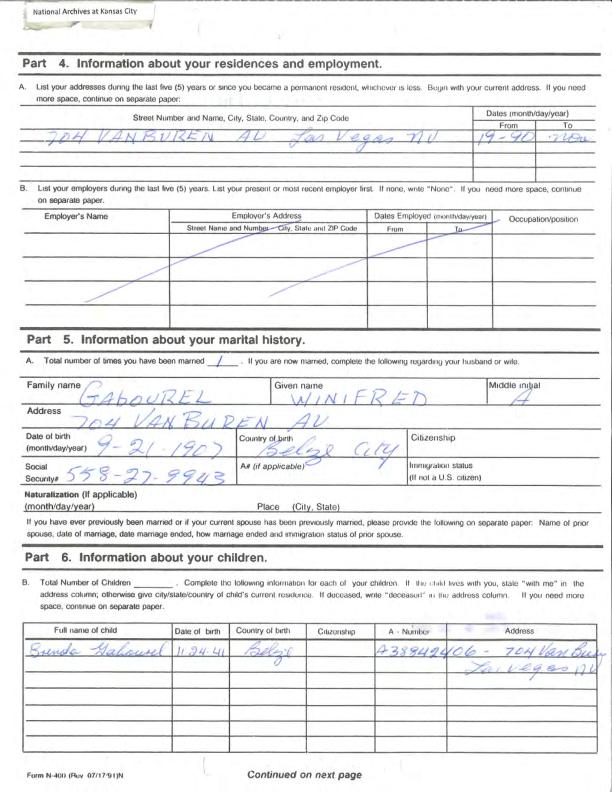 National Archives at Kansas City
Part 4. Information about your residences and employment.
A. List your addresses during the last five (5) years or since you became a permanent resident, whichever is less. Begin with your current address. If you need
more space, continue on separate paper:
Street Number and Name, City, State, Country, and Zip Code Dates (month/day/year)
From To
704 VAN BUREN AV Las Vegas NV 19-90 now
B. List your employers during the last five (5) years. List your present or most recent employer first. If none, write "None". If you need more space, continue
on separate paper.
Employer's Name Employer's Address Dates Employed (month/day/year) Occupation/position
Street Name and Number - City, State and ZIP Code From To
Part 5. Information about your marital history.
A. Total number of times you have been married 1 . If you are now married, complete the following regarding your husband or wife.
Family name GABOUREL Given name WINIFRED Middle initial A
Address 704 VAN BUREN AV
Date of birth (month/day/year) 9-21-1907 Country of birth Belize City Citizenship
Social Security# 558-27-9943 A# (if applicable) Immigration status (If not a U.S. citizen)
Naturalization (If applicable)
(month/day/year) Place (City, State)
If you have ever previously been married or if your current spouse has been previously married, please provide the following on separate paper: Name of prior
spouse, date of marriage, date marriage ended, how marriage ended and immigration status of prior spouse.
Part 6. Information about your children.
B. Total Number of Children . Complete the following information for each of your children. If the child lives with you, state "with me" in the
address column; otherwise give city/state/country of child's current residence. If deceased, write "deceased" in the address column. If you need more
space, continue on separate paper.
Full name of child Date of birth Country of birth Citizenship A - Number Address
Brenda Gabourel 11-24-41 Belize A38942406 - 704 Van Buren
Las Vegas NV
Form N-400 (Rev 07/17/91)N Continued on next page